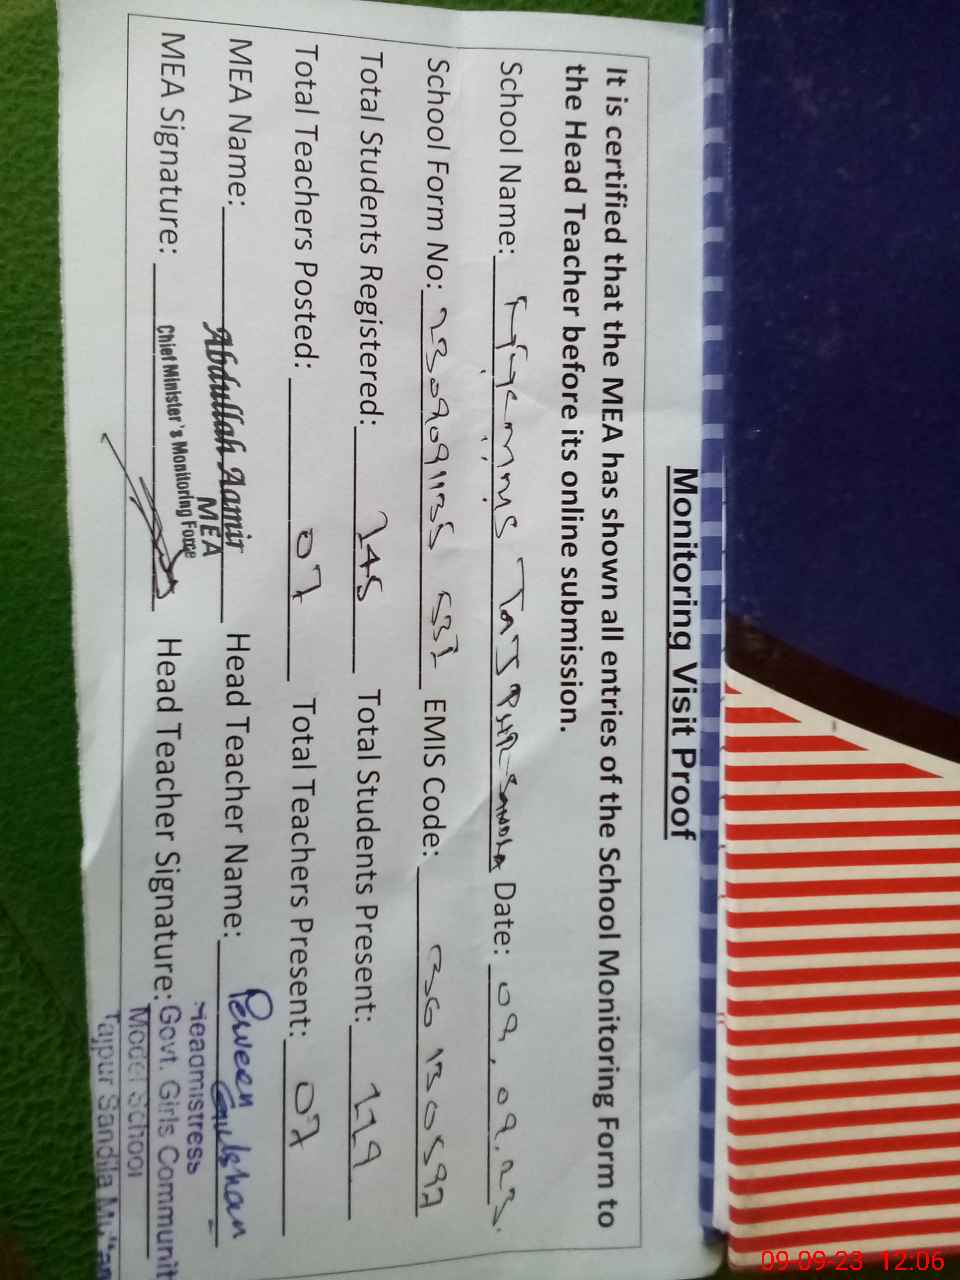 Monitoring Visit Proof
It is certified that the MEA has shown all entries of the School Monitoring Form to
the Head Teacher before its online submission.
School Name: Tajpur Sandila Date: 09.09.23.
School Form No: 2309091135 EMIS Code: 36130597
Total Students Registered: 245 Total Students Present: 229
Total Teachers Posted: 07 Total Teachers Present: 07
MEA Name: Abdullah Aamir Head Teacher Name: Perveen Gulshan
MEA
Chief Minister's Monitoring Force
Headmistress
MEA Signature: Head Teacher Signature: Govt. Girls Communit
Model School
Tajpur Sandila Multan
09-09-23 12:06